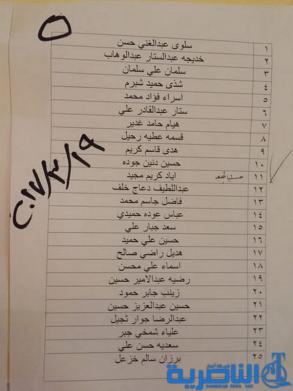 ١ سلوى عبدالغني حسن
٢ خديجه عبدالستار عبدالوهاب
٣ سلمان علي سلمان
٤ شذى حميد شبرم
٥ اسراء فؤاد محمد
٦ ستار عبدالقادر علي
٧ هيام حامد غدير
٨ قسمه عطيه رحيل
٩ هدى قاسم كريم
١٠ حسين دنين جوده
١١ اياد كريم مجيد
١٢ عبداللطيف دعاج خلف
١٣ فاضل جاسم محمد
١٤ عباس عوده حميدي
١٥ سعد جبار علي
١٦ حسين علي حميد
١٧ هديل راضي صالح
١٨ اسماء علي محسن
١٩ رضيه عبدالامير حسين
٢٠ زينب جابر حمود
٢١ حسين عبدالعزيز حسين
٢٢ عبدالرضا جوار ثجيل
٢٣ علياء شمخي جبر
٢٤ سعديه حسن علي
٢٥ برزان سالم خزعل
٢٠١٧/٣/١٩
الناصرية